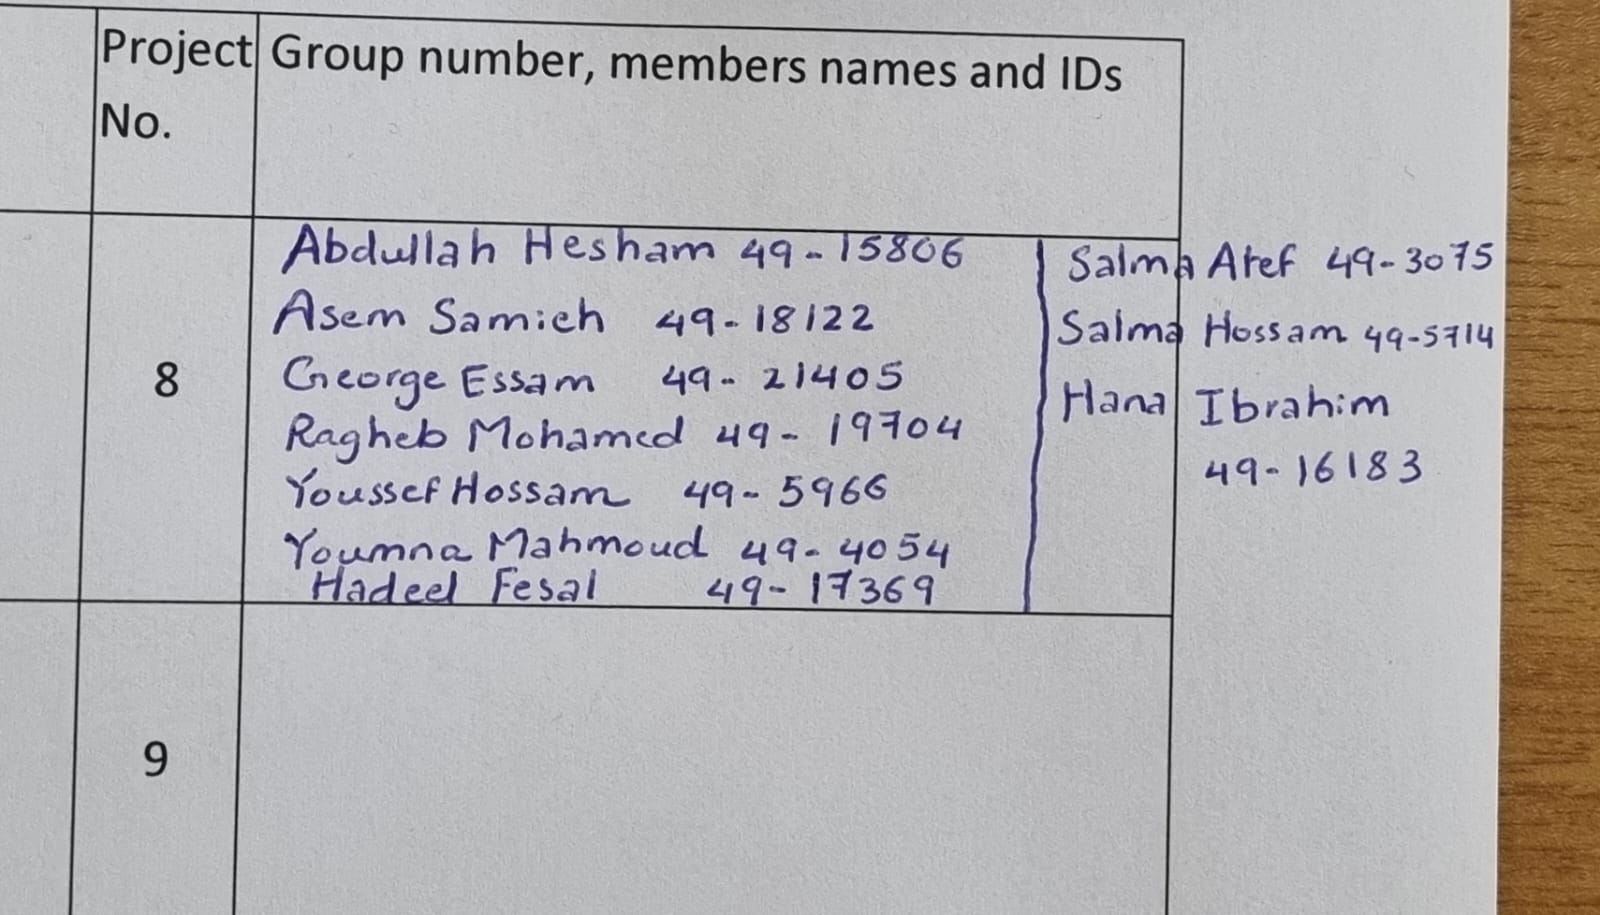 Project
No.
Group number, members names and IDs
8
Abdullah Hesham 49-15806
Asem Samieh 49-18122
George Essam 49-21405
Ragheb Mohamed 49-19704
Youssef Hossam 49-5966
Youmna Mahmoud 49-4054
Hadeel Fesal 49-17369
Salma Atef 49-3075
Salma Hossam 49-5714
Hana Ibrahim
49-16183
9